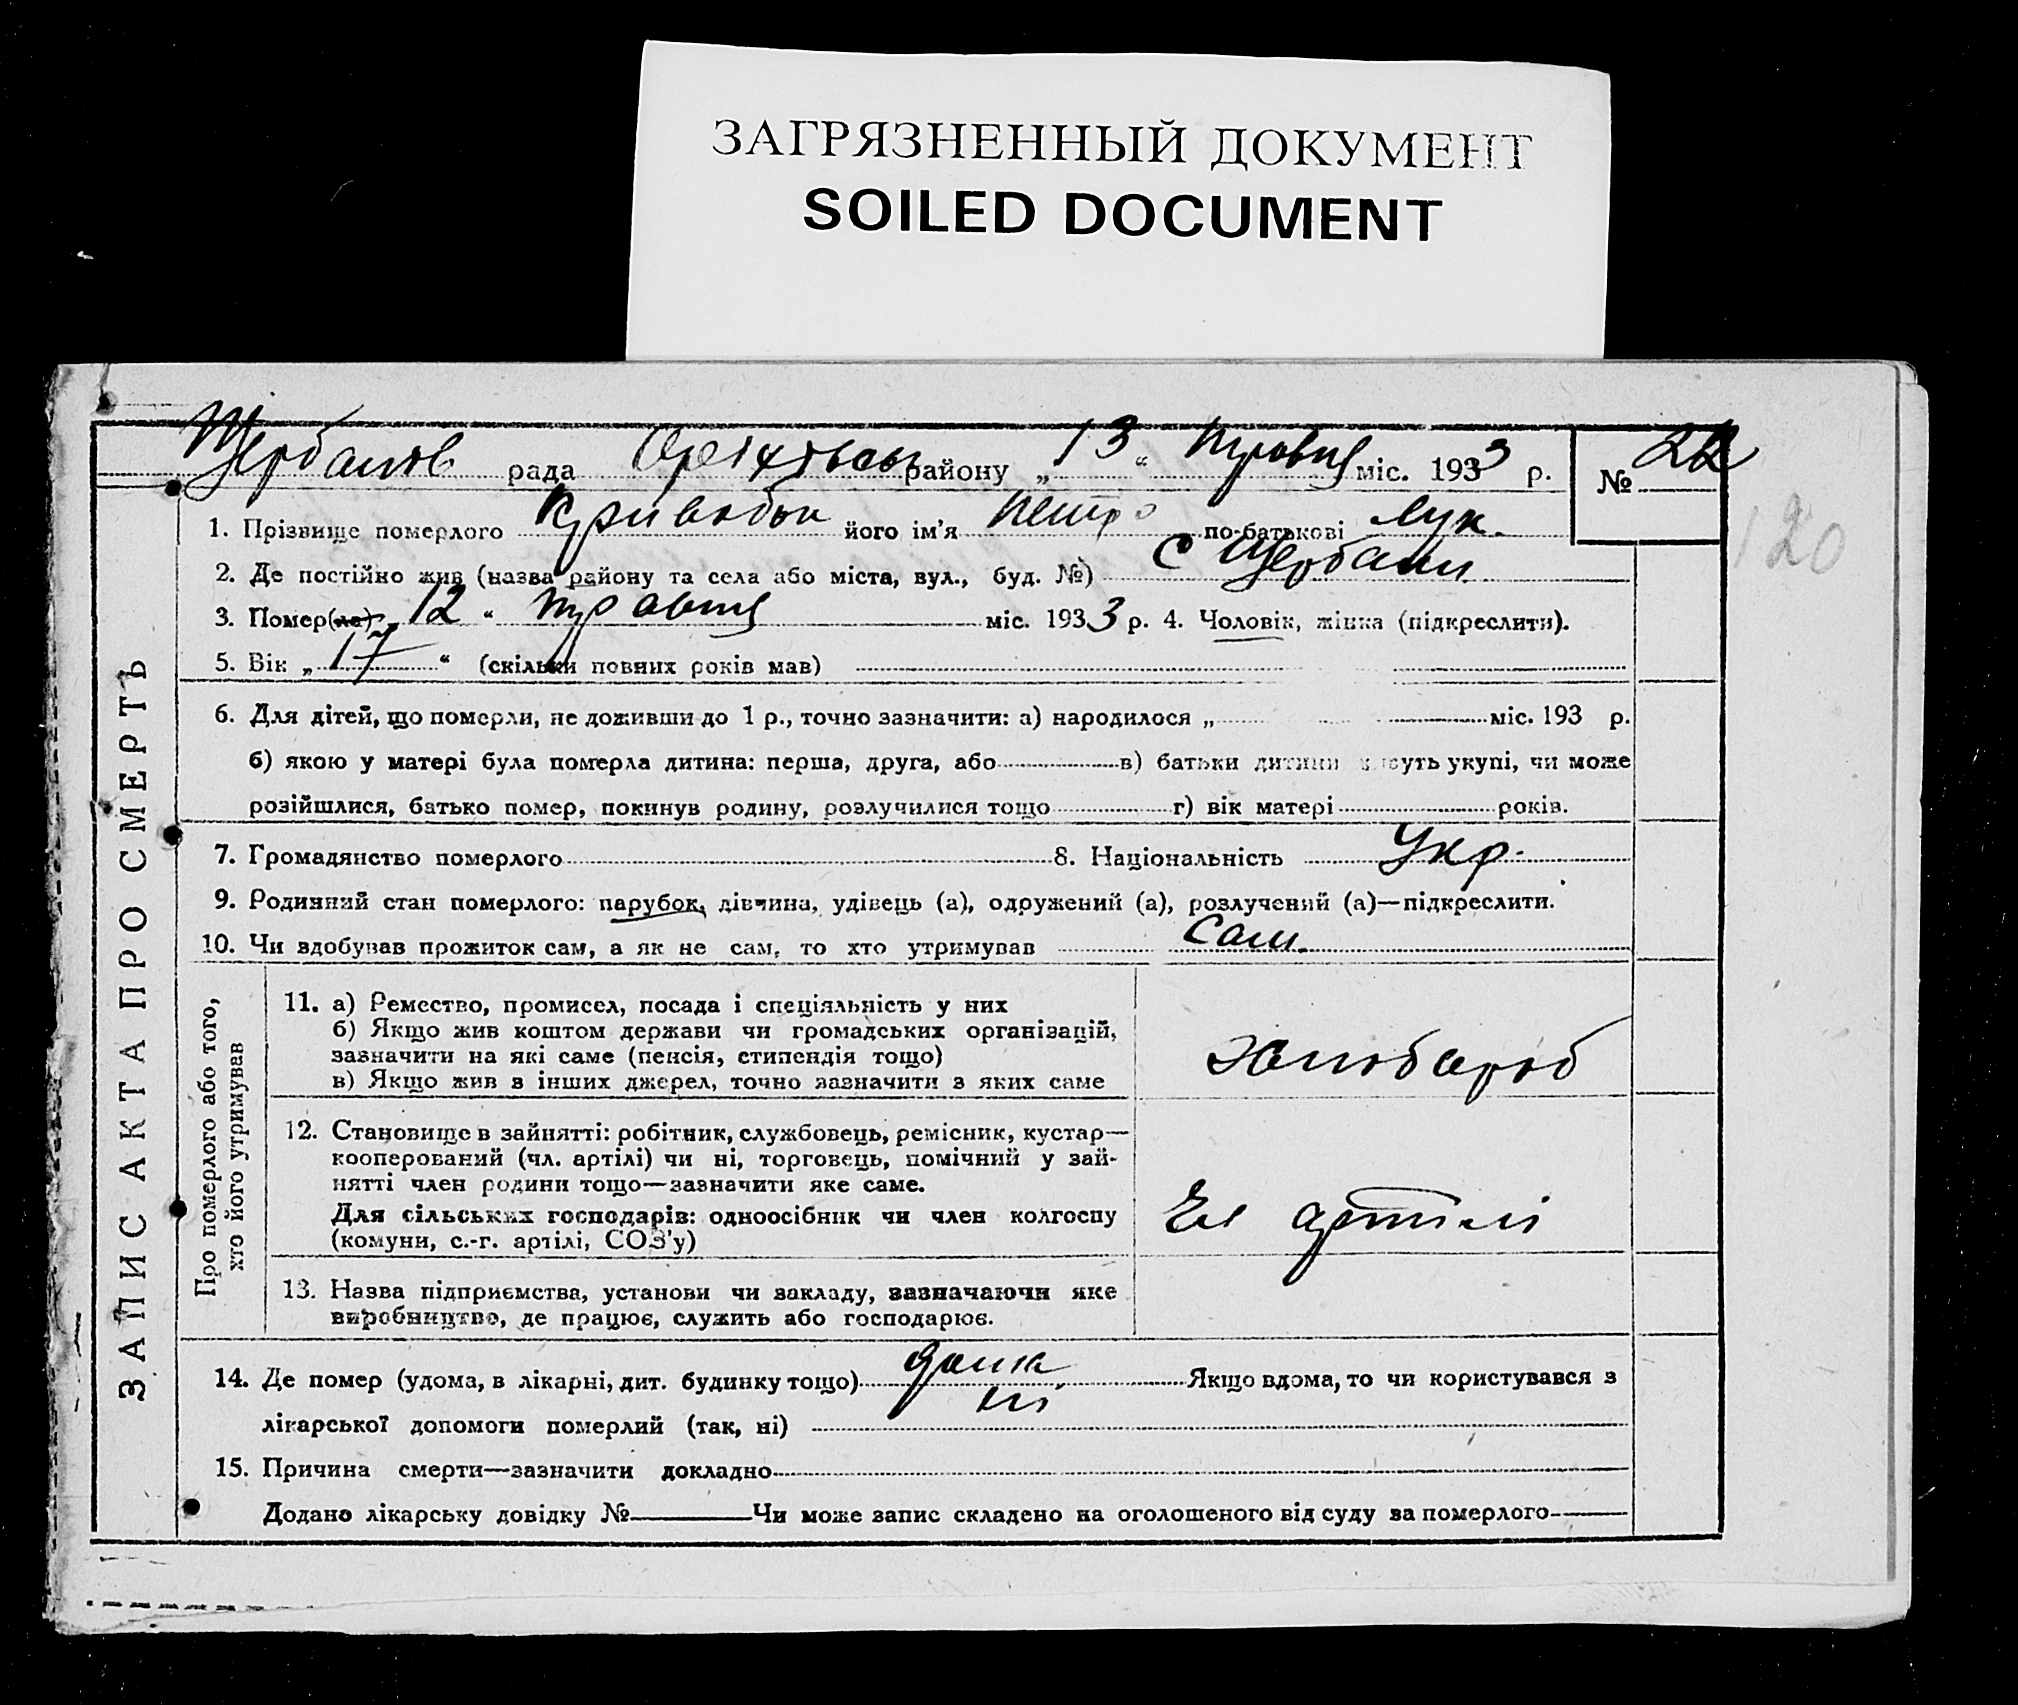 ЗАГРЯЗНЕННЫЙ ДОКУМЕНТ
SOILED DOCUMENT
Щербанів рада району „ 13 “ травня міс. 1933 р. № 22
120
1. Прізвище померлого Кривобок його ім'я Петро по-батькові Лук.
2. Де постійно жив (назва району та села або міста, вул., буд. №) С Щербани
3. Помер(ла) „ 12 “ травня міс. 1933 р. 4. Чоловік, жінка (підкреслити).
5. Вік „ 17 “ (скільки повних років мав)
6. Для дітей, що померли, не доживши до 1 р., точно зазначити: а) народилося „ міс. 193 р.
б) якою у матері була померла дитина: перша, друга, або в) батьки дитини живуть укупі, чи може
розійшлися, батько помер, покинув родину, розлучилися тощо г) вік матері років.
7. Громадянство померлого 8. Національність Укр.
9. Родинний стан померлого: парубок, дівчина, удівець (а), одружений (а), розлучений (а)—підкреслити.
10. Чи здобував прожиток сам, а як не сам, то хто утримував Сам.
ЗАПИС АКТА ПРО СМЕРТЬ
Про померлого або того,
хто його утримував
11. а) Ремество, промисел, посада і спеціяльність у них
б) Якщо жив коштом держави чи громадських організацій,
зазначити на які саме (пенсія, стипендія тощо)
в) Якщо жив з інших джерел, точно зазначити з яких саме
хлібороб
12. Становище в зайнятті: робітник, службовець, ремісник, кустар—
кооперований (чл. артілі) чи ні, торговець, помічний у зай-
нятті член родини тощо—зазначити яке саме.
Для сільських господарів: одноосібник чи член колгоспу
(комуни, с.-г. артілі, СОЗ'у)
Чл артілі
13. Назва підприємства, установи чи закладу, зазначаючи яке
виробництво, де працює, служить або господарює.
14. Де помер (удома, в лікарні, дит. будинку тощо) дома Якщо вдома, то чи користувався з
лікарської допомоги померлий (так, ні) ні
15. Причина смерти—зазначити докладно
Додано лікарську довідку № Чи може запис складено на оголошеного від суду за померлого